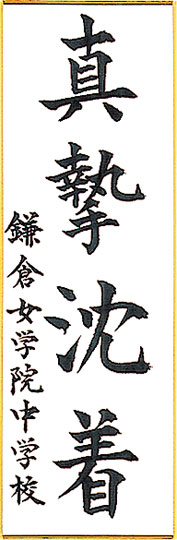 真摯沈着
鎌倉女学院中学校